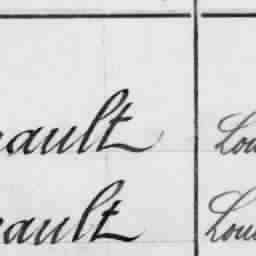 ault Lou
ault Loui